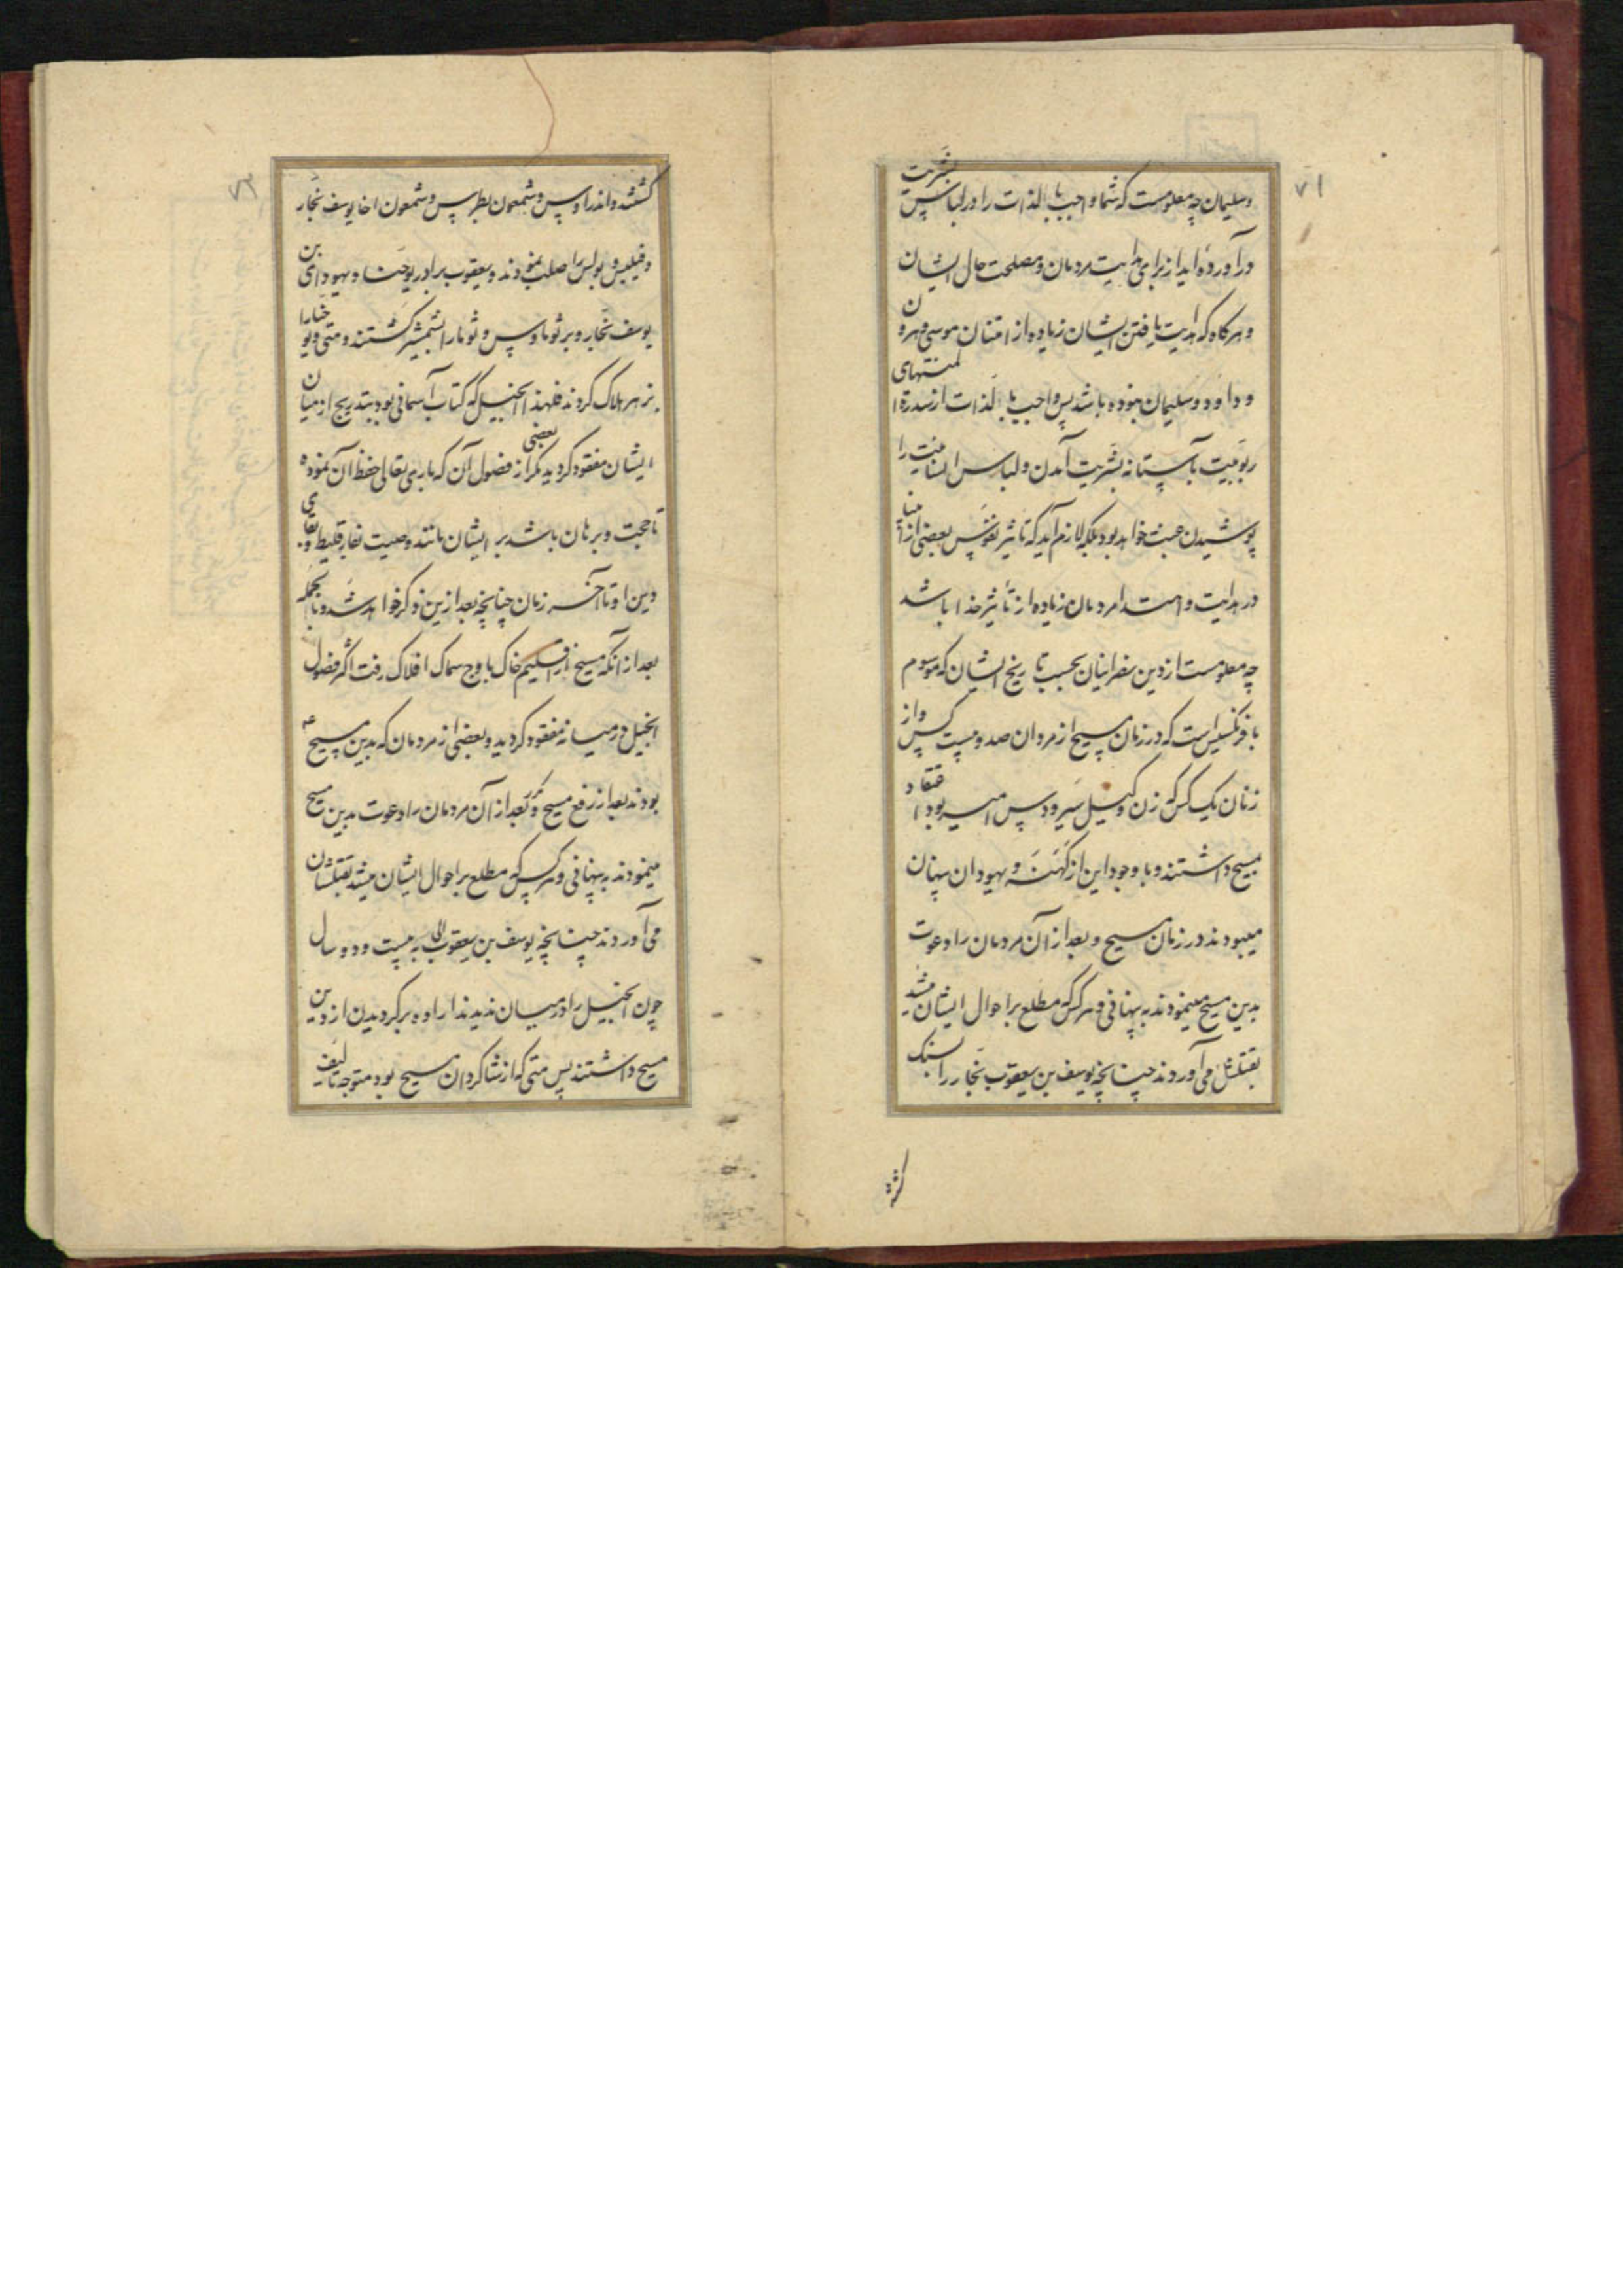 ۷۱
وسلیمان چه معلومست که شما واجب بالذات را در لباس بشریت
درآورده اید از برای هدایت مردمان و مصلحت حال ایشان
و هرگاه که هدایت یافتن ایشان زیاده از امتنان موسی و هرون
و داود و سلیمان نبوده باشد پس واجب بالذات از سدرة المنتهای
ربوبیت بآستانه بشریت آمدن و لباس انسانیت را
پوشیدن عبث خواهد بود بلکه لازم آید که تاثیر نفوس بعضی از انبیا
در هدایت و اهتداء مردمان زیاده از تأثیر خدا باشد
چه معلومست از دین نصرانیان بحسب تاریخ ایشان که موسوم
است که در زمان مسیح از مردان صد و بیست کس و از
زنان یک کس که زن وکیل امیر بود اعتقاد
مسیح داشتند و با وجود این از کهنه و یهودان پنهان
میبودند در زمان مسیح و بعد از آن مردمان را دعوت
بدین مسیح مینمودند به پنهانی و هر کس که مطلع بر احوال ایشان میشد
بقتلش می آوردند چنانچه یوسف بن یعقوب نجار را بسنگ
کشتند
۷۲
کشتند و اندراوس و شمعون بطرس و شمعون اخا یوسف نجار
و فیلبس و بولس را صلب نمودند و یعقوب برادر یوحنا و یهودای بن
یوسف نجار و برثوماوس و ثوما را بشمشیر کشتند و متی و یوحنا را
بزهر هلاک کردند فلهذا انجیل که کتاب آسمانی بود بتدریج از میان
ایشان مفقود گردید مگر از بعضی فصول آن که باری تعالی حفظ آن نموده
تا حجت و برهان باشد بر ایشان مانند وصیت بفارقلیط و بقای
دین او تا آخر زمان چنانچه بعد ازین ذکر خواهد شد و بالجمله
بعد از آنکه مسیح از اقلیم خاک باوج سماک افلاک رفت اکثر فصول
انجیل در میانه مفقود گردید و بعضی از مردمان که بدین مسیح ع
بودند بعد از رفع مسیح و بعد از آن مردمان را دعوت بدین مسیح
مینمودند به پنهانی و هر کس که مطلع بر احوال ایشان میشد بقتلشان
می آوردند چنانچه یوسف بن یعقوب الی به بیست و دو سال
چون انجیل را در میان ندیدند اراده برگردیدن از دین
مسیح داشتند پس متی که از شاگردان مسیح بود متوجه تالیف